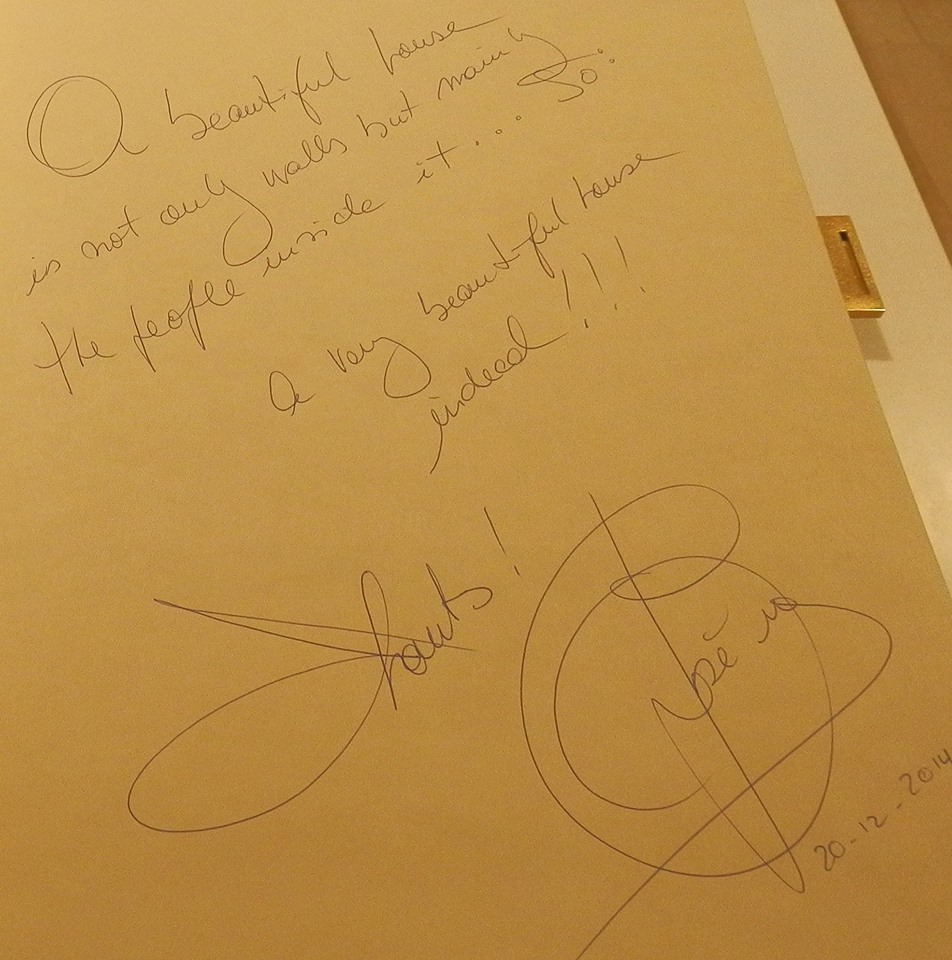 A beautiful house
is not only walls but mainly
the people inside it... So:
a very beautiful house
indeed!!!
Thanks!
20-12-2014